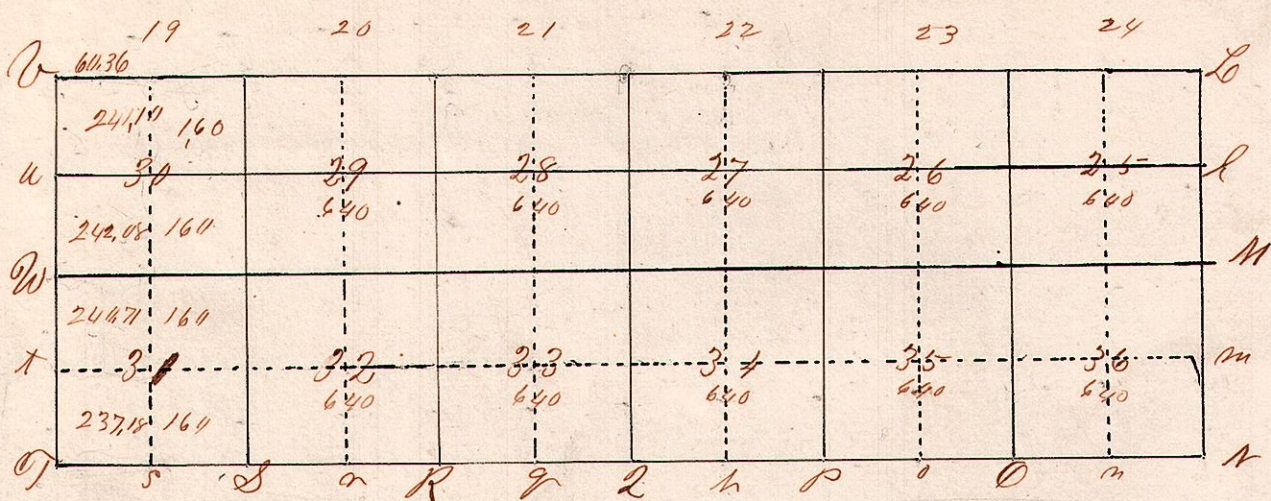 19 20 21 22 23 24
V L
241,10 160
u 30 29 28 27 26 25 l
640 640 640 640 640
242,08 160
W M
160
t 31 32 33 34 35 36 m
640 640 640 640 640
237,18 160
T s S r R q Q p P o O n N